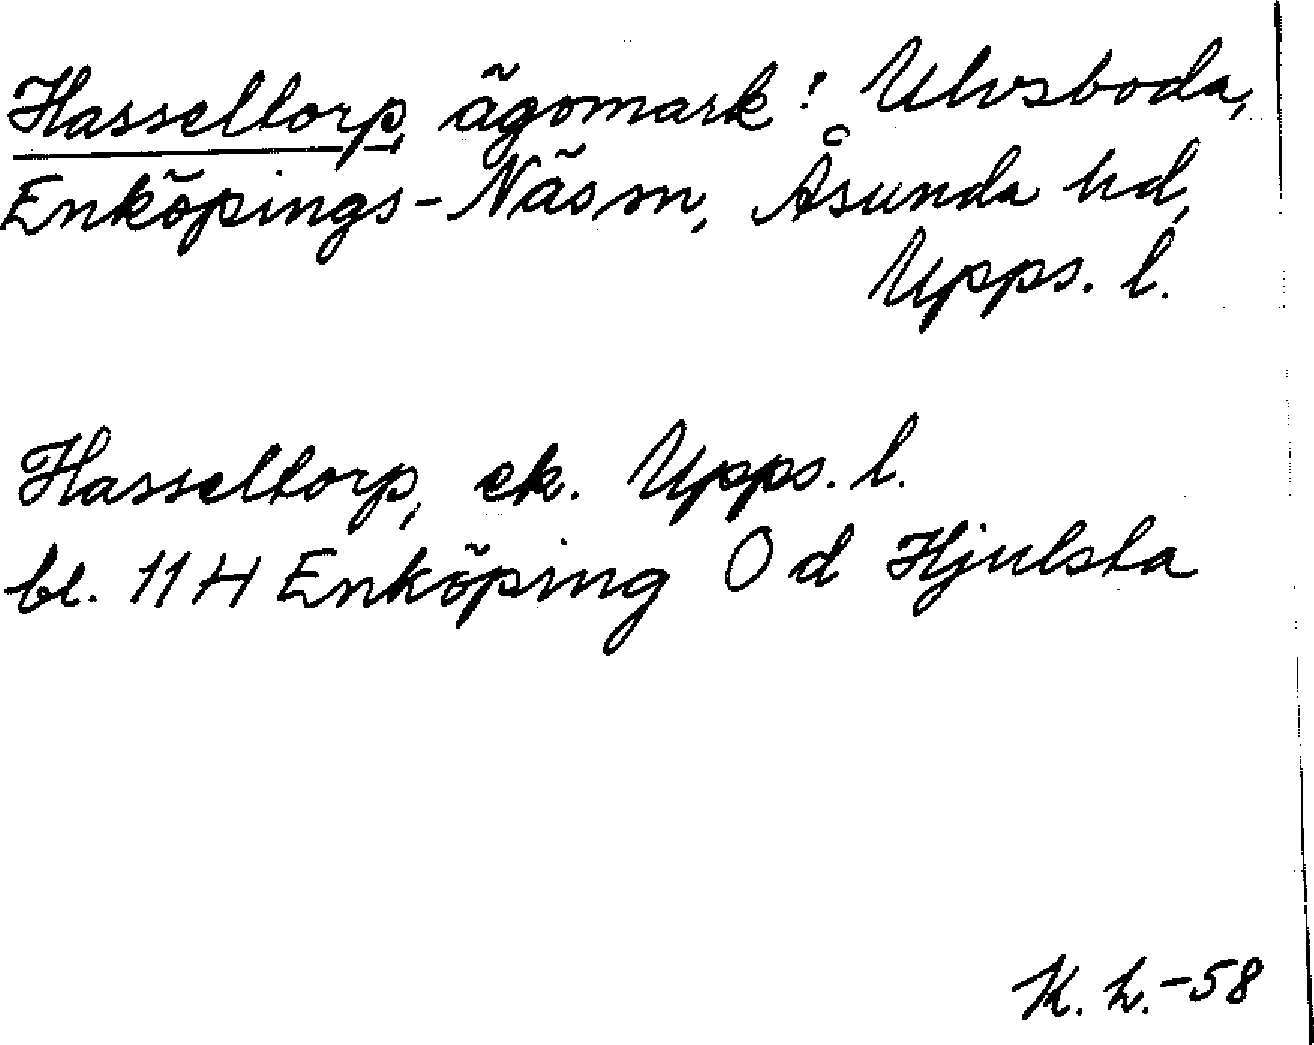 Hasseltorp, ägomark: Ulvsboda,
Enköpings-Näs sn, Åsunda hd,
Upps. l.
Hasseltorp, ek. Upps. l.
bl. 11 H Enköping O d Hjulsta
K. L. -58